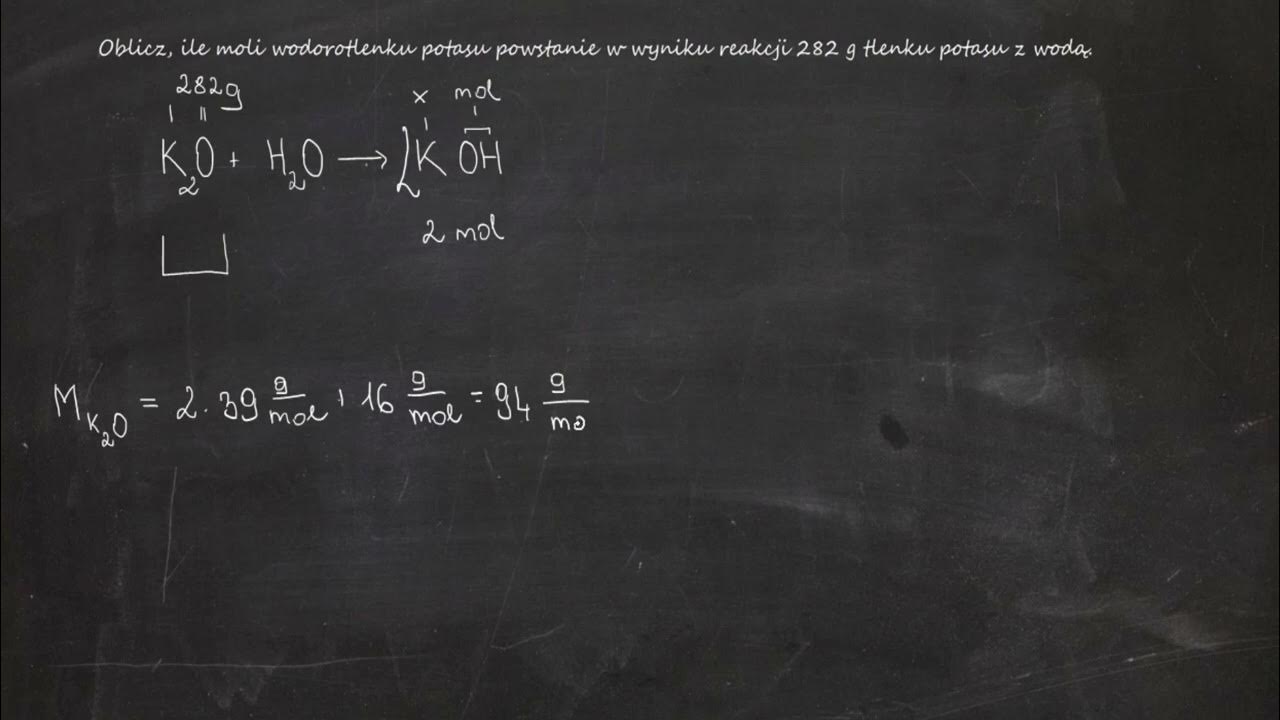 Oblicz, ile moli wodorotlenku potasu powstanie w wyniku reakcji 282 g tlenku potasu z wodą.
282g x mol
I II I I
K₂O + H₂O → 2KOH
2 mol
M K₂O = 2·39 g/mol + 16 g/mol = 94 g/mo